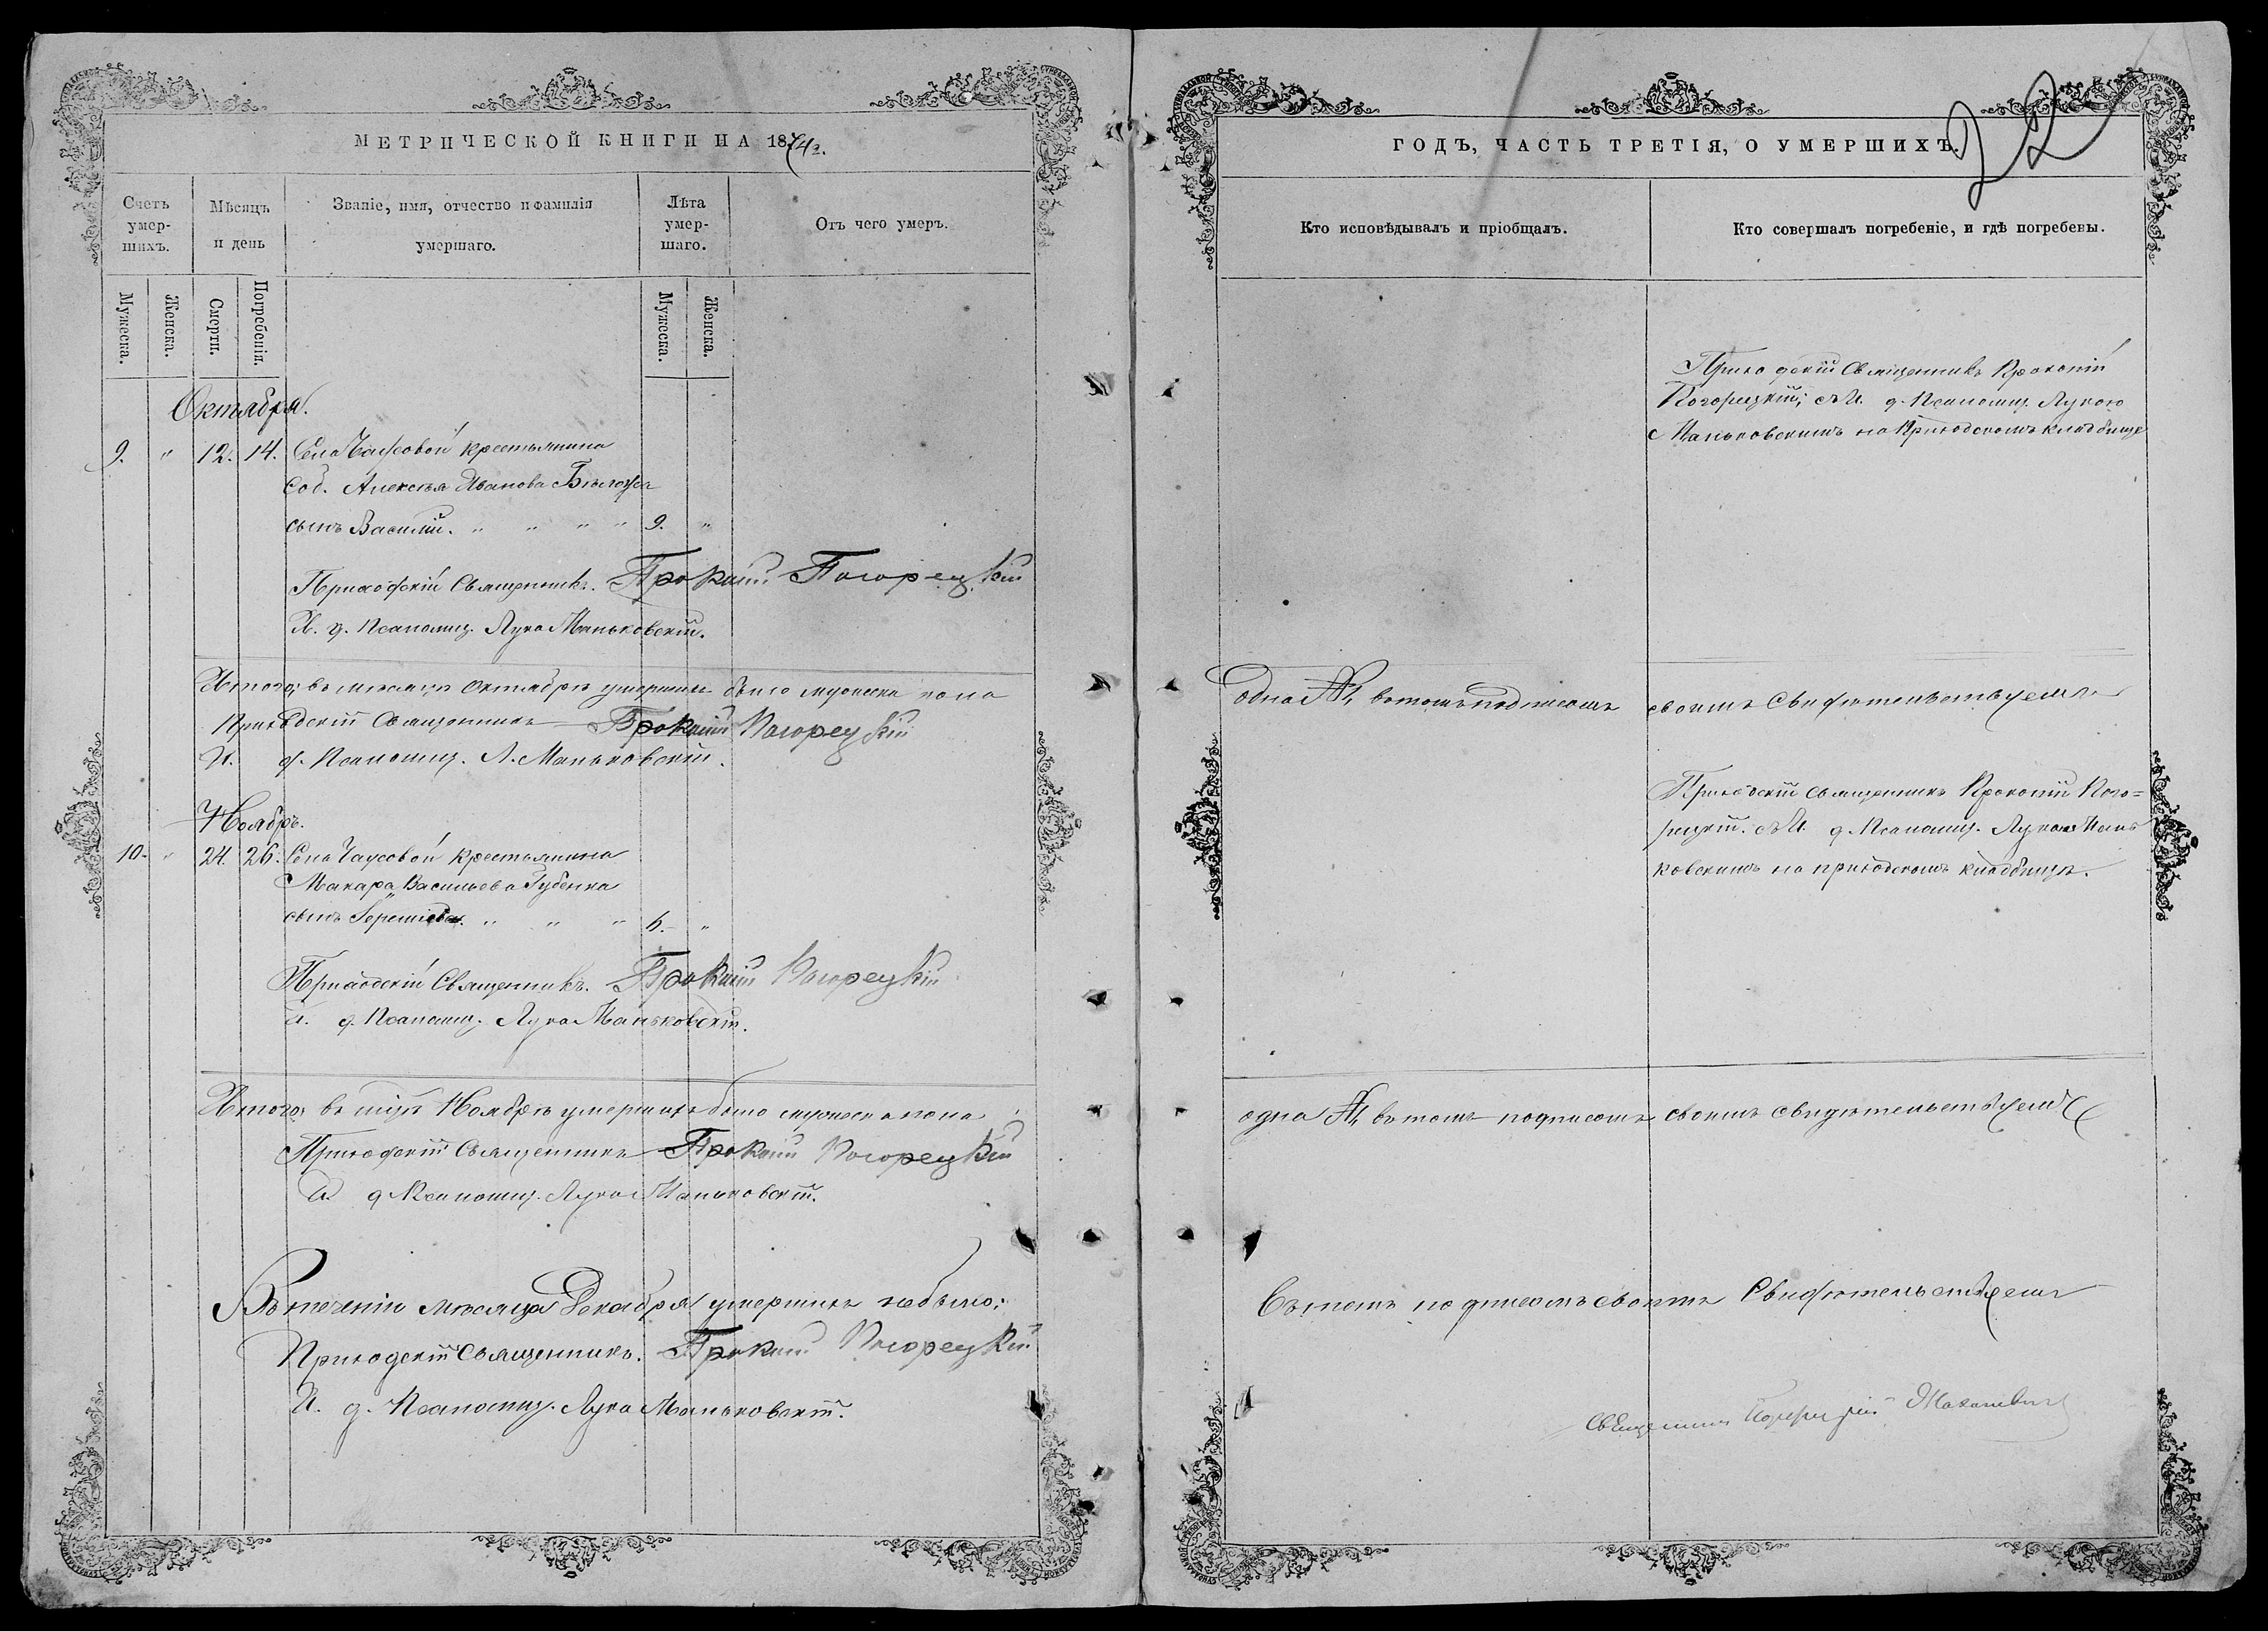 МЕТРИЧЕСКОЙ КНИГИ НА 1874 г.
Счетъ умер-шихъ.
Мѣсяцъ и день
Званіе, имя, отчество и фамилія умершаго.
Лѣта умер-шаго.
Отъ чего умеръ.
Мужеска.
Женска.
Смерти.
Погребенія.
Мужеска.
Женска.
Октября.
9. " 12. 14. Села Чаусовой крестьянина
Соб. Алексѣя Иванова
сынъ Василій. " " " " 9. "
Приходскій Священникъ. Прокопій Погорецкій
И. д. Псаломщ. Лука Маньковскій.
Итого; въ мѣсяцѣ Октябрѣ умершихъ было мужеска пола
Приходскій Священникъ Прокопій Погорецкій
И. д. Псаломщ. Л. Маньковскій.
Ноябрь.
10. " 24. 26. Села Чаусовой крестьянина
Макара Васильева Губенка
сынъ " " " 6. "
Приходскій Священникъ. Прокопій Погорецкій
И. д. Псаломщ. Лука Маньковскій.
Итого; въ м-цѣ Ноябрѣ умершихъ было мужеска пола
Приходскій Священникъ Прокопій Погорецкій
И. д. Псаломщ. Лука Маньковскій.
Въ теченіи мѣсяца Декабря умершихъ небыло;
Приходскій Священникъ. Прокопій Погорецкій
И. д. Псаломщ. Лука Маньковскій.
22
ГОДЪ, ЧАСТЬ ТРЕТІЯ, О УМЕРШИХЪ.
Кто исповѣдывалъ и пріобщалъ.
Кто совершалъ погребеніе, и гдѣ погребены.
Приходскій Священникъ Прокопій
Погорецкій; съ И. д. Псаломщ. Лукою
Маньковскимъ на Приходскомъ кладбище
одна въ томъ подписомъ своимъ свидѣтельствуемъ
Приходскій священникъ Прокопій Пого=
рецкій. съ И. д. Псаломщ. Лукою Мань
ковскимъ на приходскомъ кладбищѣ.
одна въ томъ подписомъ своимъ свидѣтельствуемъ
Въ томъ подписомъ своимъ Свидѣтельствуемъ